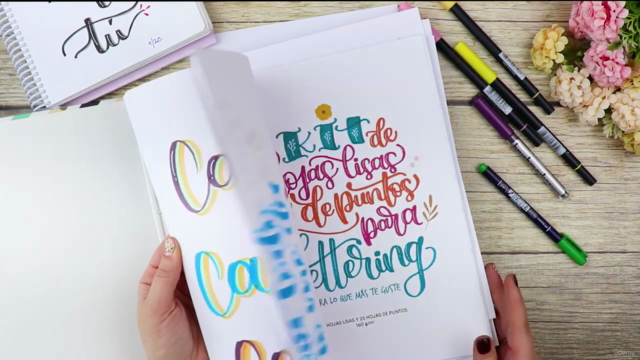 tú
1/20
KIT de
ojas lisas
de puntos
para
ettering
RA LO QUE MÁS TE GUSTE
HOJAS LISAS Y 25 HOJAS DE PUNTOS
160 g/m²
Ca
Ca